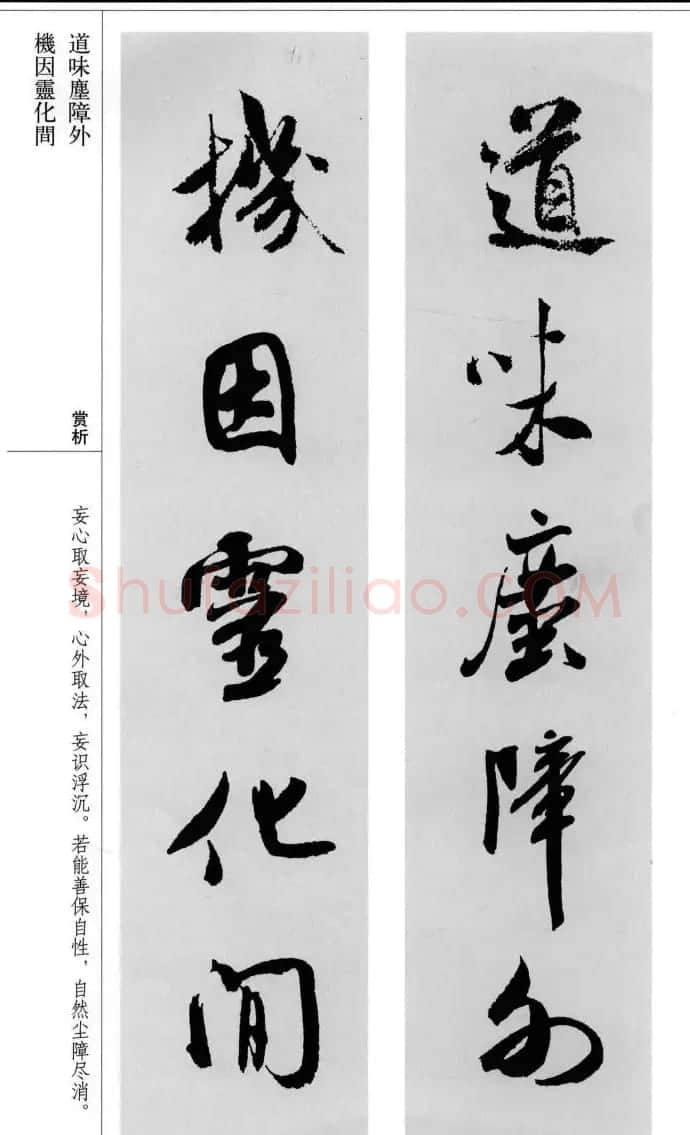 道味塵障外
機因靈化間
賞析
妄心取妄境，心外取法，妄识浮沉。若能善保自性，自然尘障尽消。
道味塵障外
機因靈化間
Shufaziliao.COM